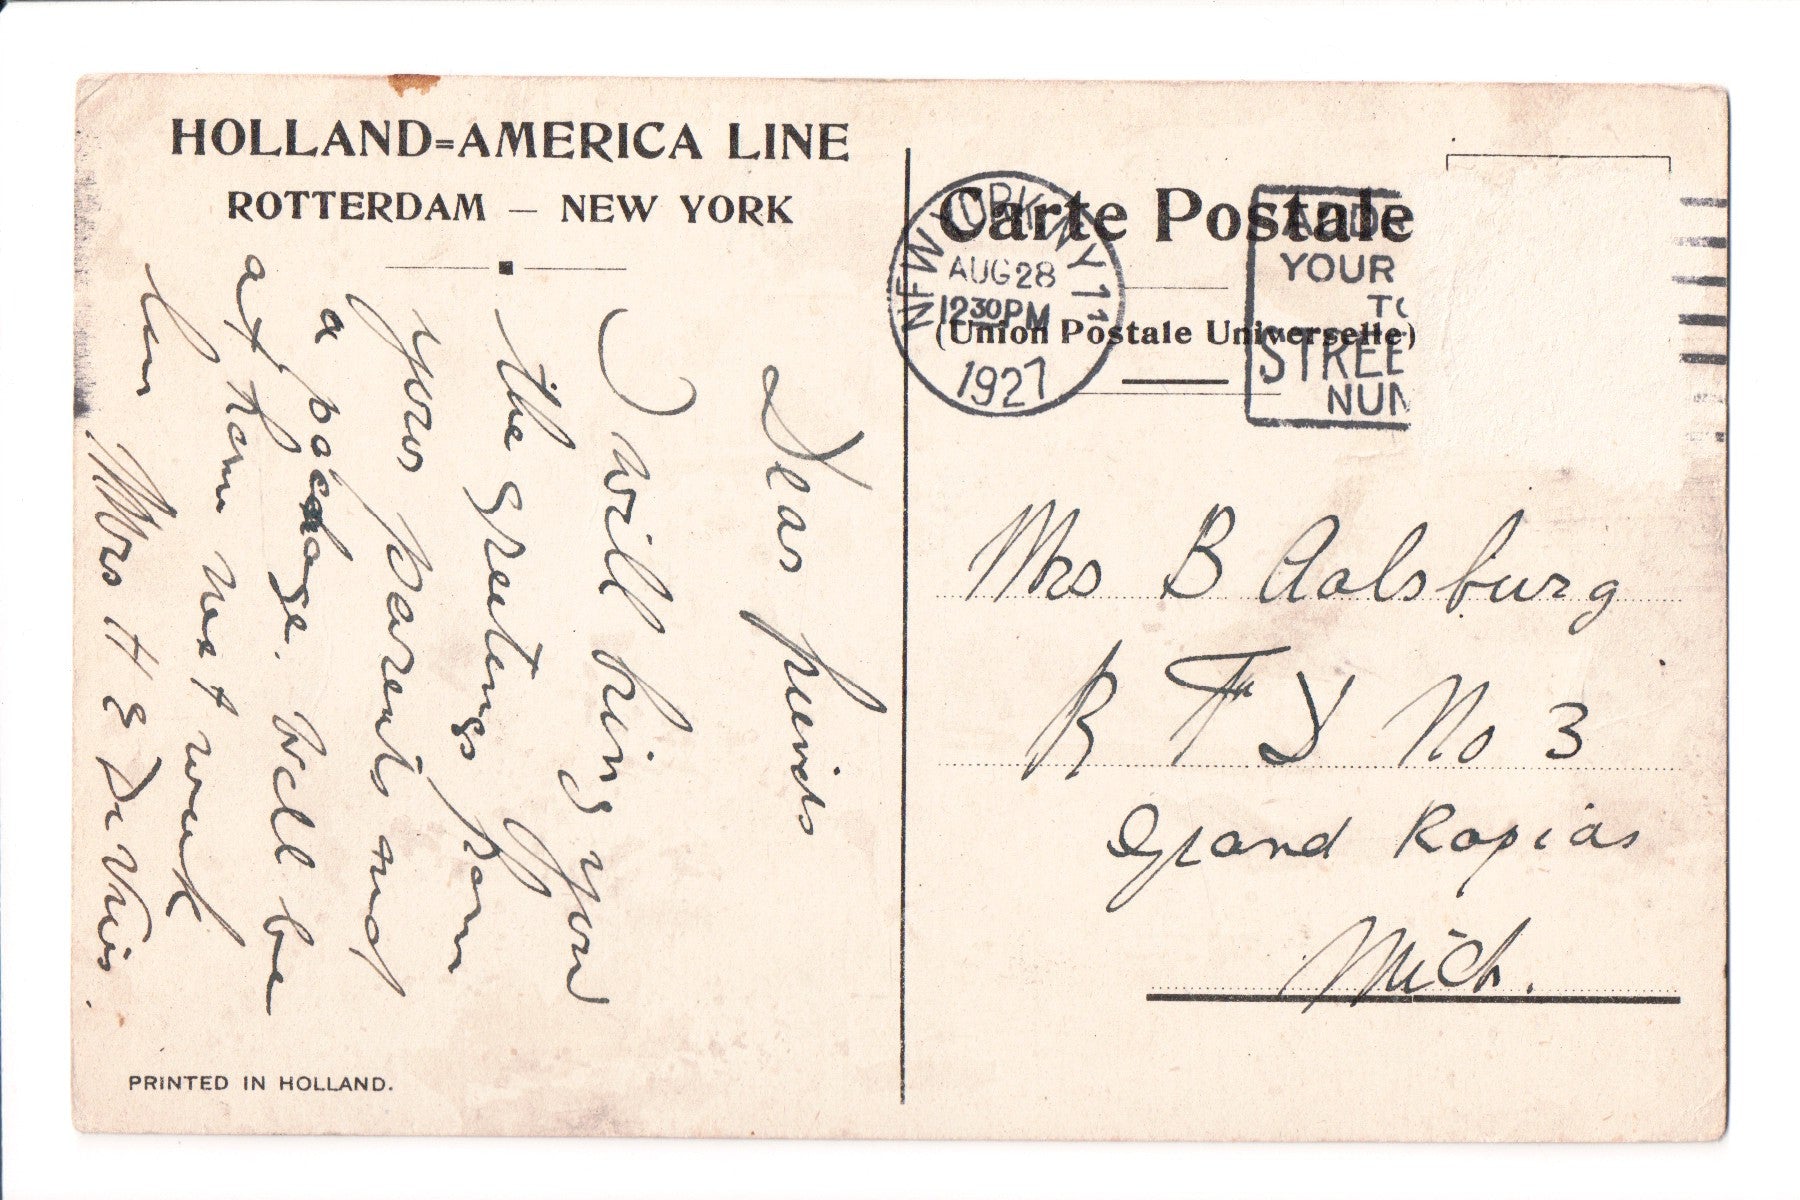 HOLLAND=AMERICA LINE
ROTTERDAM — NEW YORK
Dear friends
I will bring you
the greetings from
your parents and
a package. Will be
at home next week
Mrs H E De Vries.
PRINTED IN HOLLAND.
Carte Postale
(Union Postale Universelle)
NEW YORK N Y 11
AUG 28
1230PM
1927
YOUR
STREE
NUM
Mrs B Aalsburg
R F D No 3
Grand Rapids
Mich.